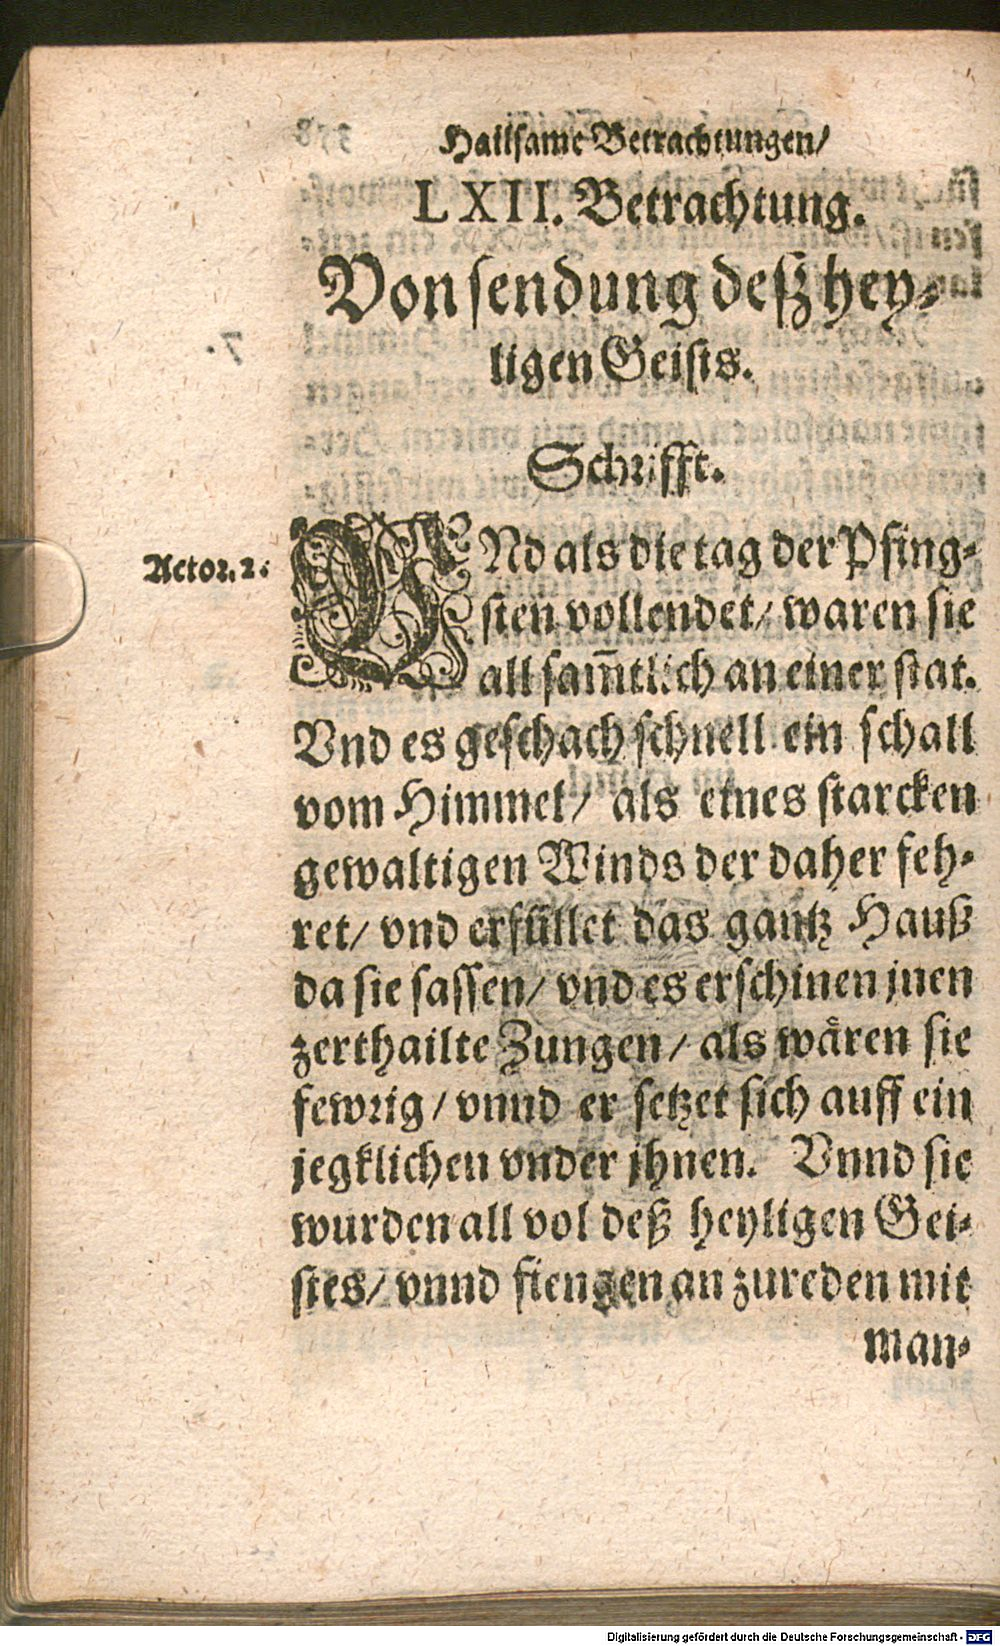 Hailsame Betrachtungen/
LXII. Betrachtung.
Von sendung deß hey-
ligen Geists.
Schrifft.
Actor. 2.
VNd als die tag der Pfing-
sten vollendet/ waren sie
all sam̃tlich an einer stat.
Vnd es geschach schnell ein schall
vom Himmel/ als eines starcken
gewaltigen Winds der daher feh-
ret/ vnd erfüllet das gantz Hauß
da sie sassen/ vnd es erschinen jnen
zerthailte Zungen/ als wåren sie
fewrig/ vnnd er setzet sich auff ein
jegklichen vnder jhnen. Vnnd sie
wurden all vol deß heyligen Gei-
stes/ vnnd fiengen an zureden mit
man-
Digitalisierung gefördert durch die Deutsche Forschungsgemeinschaft - DFG